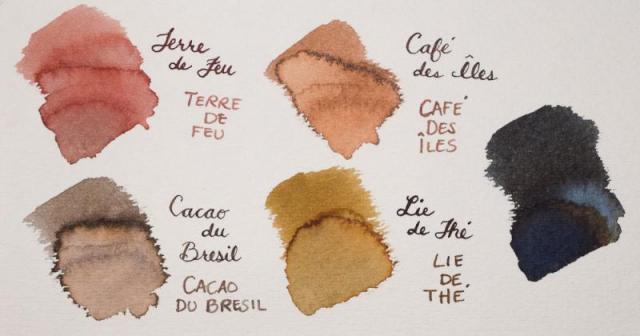 Terre
de Feu
TERRE
DE
FEU
Café
des Îles
CAFÉ
DES
ÎLES
Cacao
du
Bresil
CACAO
DU BRESIL
Lie
de Thé
LIE
DE
THÉ